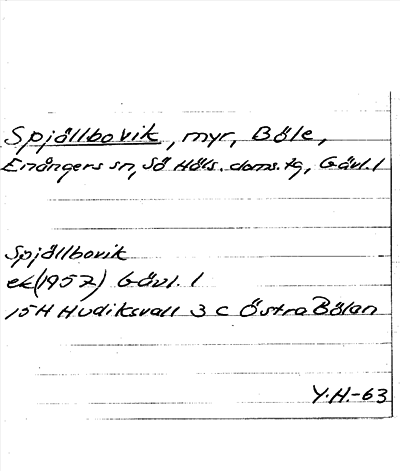 Spjällbovik, myr, Böle,
Enångers sn, Sö Häls. doms. tg, Gävl. l
Spjällbovik
ek (1957) Gävl. l
15H Hudiksvall 3 c Östra Bölan
Y.H.-63